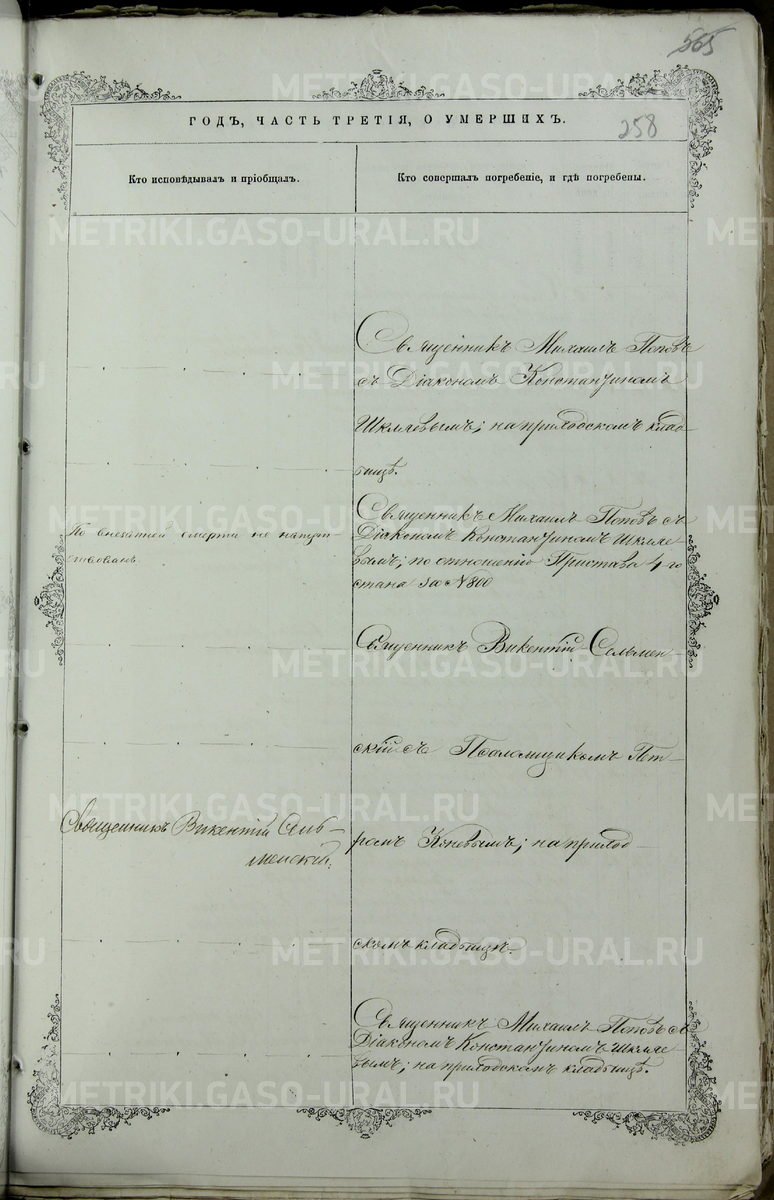 565
ГОДЪ, ЧАСТЬ ТРЕТІЯ, О УМЕРШИХЪ.
258
Кто исповѣдывалъ и пріобщалъ.
Кто совершалъ погребеніе, и гдѣ погребены.
Священникъ Михаилъ Поповъ
съ Діакономъ Константиномъ
Шкляевымъ; на приходскомъ клад-
бищѣ.
По внезапной смерти не напут-
ствованъ.
Священникъ Михаилъ Поповъ съ
Діакономъ Константиномъ Шкляе-
вымъ; по отношенію Пристава 4 го
стана за № 800
Священникъ Викентій Сельмен-
скій съ Псаломщикомъ Пет-
Священникъ Викентій Сель-
менскій.
ромъ Коневымъ; на приход-
скомъ кладбищѣ.
Священникъ Михаилъ Поповъ съ
Діакономъ Константиномъ Шкляе-
вымъ; на приходскомъ кладбищѣ.
METRIKI.GASO-URAL.RU